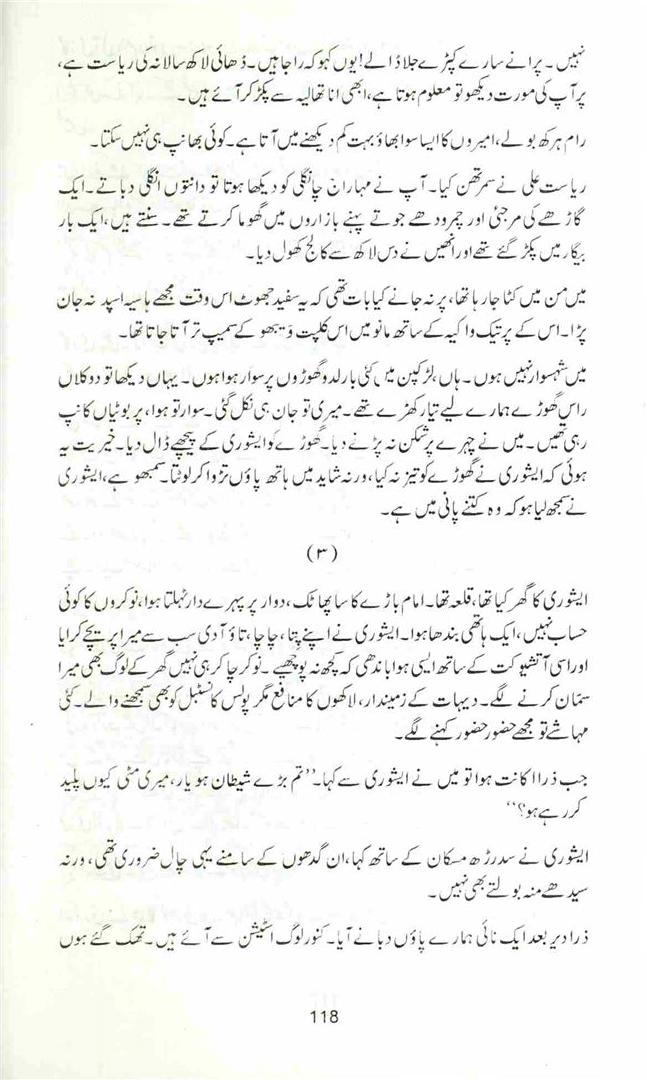 نہیں۔ پرانے سارے کپڑے جلا ڈالے! یوں کہو کہ راجا ہیں۔ ڈھائی لاکھ سالانہ کی ریاست ہے،
پر آپ کی مورت دیکھو تو معلوم ہوتا ہے، ابھی اناتھالیہ سے پکڑ کر آئے ہیں۔
رام ہرکھ بولے، امیروں کا ایسا سوابھاؤ بہت کم دیکھنے میں آتا ہے۔ کوئی بھانپ ہی نہیں سکتا۔
ریاست علی نے سمرتھن کیا۔ آپ نے مہاراج چانگلی کو دیکھا ہوتا تو دانتوں انگلی دباتے۔ ایک
گاڑھے کی مرجئی اور چمرودھے جوتے پہنے بازاروں میں گھوما کرتے تھے۔ سنتے ہیں، ایک بار
بیگار میں پکڑ گئے تھے اور انھیں نے دس لاکھ سے کالج کھول دیا۔
میں من میں کٹا جا رہا تھا، پر نہ جانے کیا بات تھی کہ یہ سفید جھوٹ اس وقت مجھے ہاسیہ اسپد نہ جان
پڑا۔ اس کے پرتیک واکیہ کے ساتھ مانو میں اس کلپت ویبھو کے سمیپ تر آتا جاتا تھا۔
میں شہسوار نہیں ہوں۔ ہاں، لڑکپن میں کئی بار لدو گھوڑوں پر سوار ہوا ہوں۔ یہاں دیکھا تو دو کلاں
راس گھوڑے ہمارے لیے تیار کھڑے تھے۔ میری تو جان ہی نکل گئی۔ سوار تو ہوا، پر بوٹیاں کانپ
رہی تھیں۔ میں نے چہرے پر شکن نہ پڑنے دیا۔ گھوڑے کو ایشوری کے پیچھے ڈال دیا۔ خیریت یہ
ہوئی کہ ایشوری نے گھوڑے کو تیز نہ کیا، ورنہ شاید میں ہاتھ پاؤں تڑوا کر لوٹتا۔ سمبھو ہے، ایشوری
نے سمجھ لیا ہو کہ وہ کتنے پانی میں ہے۔
(۳)
ایشوری کا گھر کیا تھا، قلعہ تھا۔ امام باڑے کا سا پھاٹک، دوار پر پہرے دار ٹہلتا ہوا، نوکروں کا کوئی
حساب نہیں، ایک ہاتھی بندھا ہوا۔ ایشوری نے اپنے پتا، چاچا، تاؤ آدی سب سے میرا پریچے کرایا
اور اسی آتشیوکت کے ساتھ ایسی ہوا باندھی کہ کچھ نہ پوچھیے۔ نوکر چاکر ہی نہیں گھر کے لوگ بھی میرا
سمّان کرنے لگے۔ دیہات کے زمیندار، لاکھوں کا منافع مگر پولس کانسٹبل کو بھی سمجھنے والے۔ کئی
مہاشے تو مجھے حضور حضور کہنے لگے۔
جب ذرا اکانت ہوا تو میں نے ایشوری سے کہا۔ ”تم بڑے شیطان ہو یار، میری مٹی کیوں پلید
کر رہے ہو؟“
ایشوری نے سدرڑھ مسکان کے ساتھ کہا، ان گدھوں کے سامنے یہی چال ضروری تھی، ورنہ
سیدھے منہ بولتے بھی نہیں۔
ذرا دیر بعد ایک نائی ہمارے پاؤں دبانے آیا۔ کنور لوگ اسٹیشن سے آئے ہیں۔ تھک گئے ہوں
118